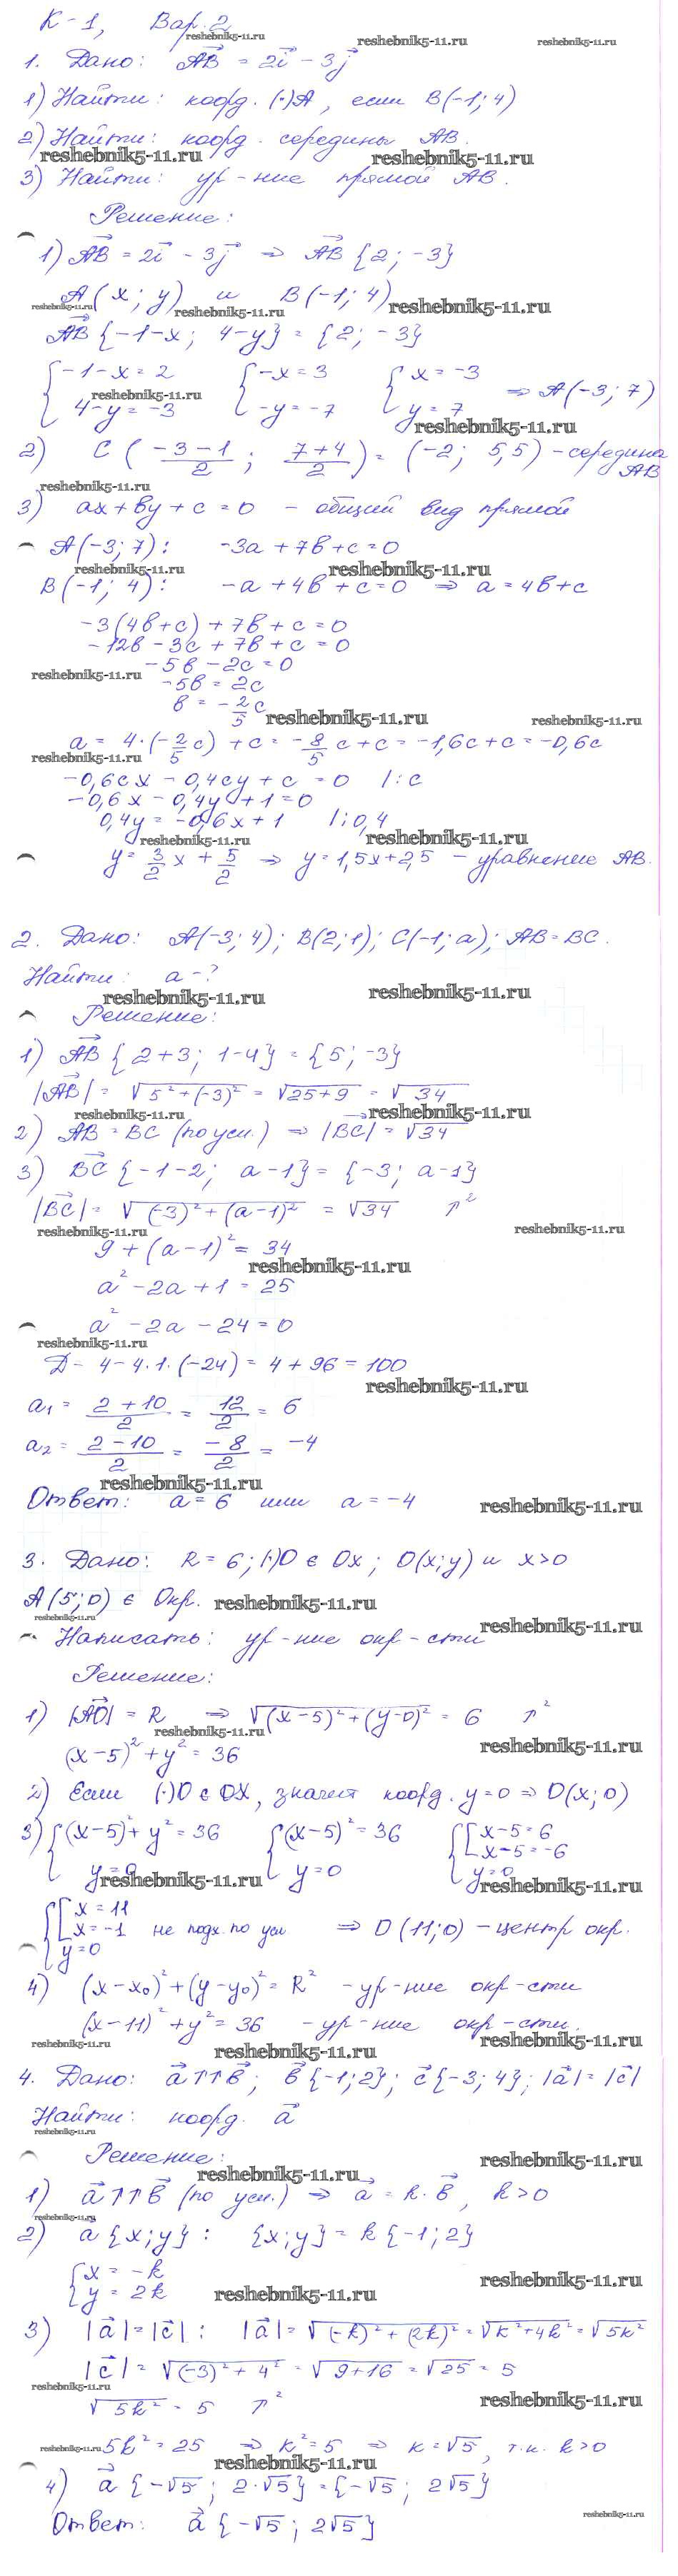 К-1, Вар. 2
reshebnik5-11.ru reshebnik5-11.ru reshebnik5-11.ru
1. Дано: AB = 2i - 3j
1) Найти: коорд. (·)A, если B(-1; 4)
2) Найти: коорд. середины AB.
reshebnik5-11.ru reshebnik5-11.ru
3) Найти: ур-ние прямой AB.
Решение:
1) AB = 2i - 3j ⇒ AB {2; -3}
A(x; y) и B(-1; 4)
reshebnik5-11.ru reshebnik5-11.ru reshebnik5-11.ru
AB {-1-x; 4-y} = {2; -3}
{-1-x = 2 {-x = 3 {x = -3
reshebnik5-11.ru ⇒ A(-3; 7)
4-y = -3 -y = -7 y = 7
reshebnik5-11.ru
2) C (-3-1/2; 7+4/2) = (-2; 5,5) - середина AB
reshebnik5-11.ru
3) ax+by+c=0 - общий вид прямой
A(-3; 7): -3a+7b+c=0
reshebnik5-11.ru reshebnik5-11.ru
B(-1; 4): -a+4b+c=0 ⇒ a=4b+c
-3(4b+c)+7b+c=0
-12b-3c+7b+c=0
-5b-2c=0
reshebnik5-11.ru
-5b=2c
b = -2/5 c
reshebnik5-11.ru reshebnik5-11.ru
a = 4·(-2/5 c)+c = -8/5 c+c = -1,6c+c = -0,6c
reshebnik5-11.ru
-0,6cx - 0,4cy + c = 0 |:c
-0,6x - 0,4y + 1 = 0
0,4y = -0,6x+1 |:0,4
reshebnik5-11.ru reshebnik5-11.ru
y = 3/2 x + 5/2 ⇒ y = 1,5x+2,5 - уравнение AB.
2. Дано: A(-3; 4); B(2; 1); C(-1; a); AB=BC.
Найти: a-?
reshebnik5-11.ru reshebnik5-11.ru
Решение:
1) AB {2+3; 1-4} = {5; -3}
|AB| = √5²+(-3)² = √25+9 = √34
reshebnik5-11.ru reshebnik5-11.ru
2) AB=BC (по усл.) ⇒ |BC| = √34
3) BC {-1-2; a-1} = {-3; a-1}
|BC| = √(-3)²+(a-1)² = √34 ↑²
reshebnik5-11.ru reshebnik5-11.ru
9+(a-1)² = 34
reshebnik5-11.ru
a²-2a+1 = 25
a²-2a-24=0
reshebnik5-11.ru
D = 4-4·1·(-24) = 4+96 = 100
reshebnik5-11.ru
a₁ = 2+10/2 = 12/2 = 6
a₂ = 2-10/2 = -8/2 = -4
reshebnik5-11.ru
Ответ: a=6 или a=-4
reshebnik5-11.ru
3. Дано: R=6; (·)O ∈ Ox; O(x; y) и x>0
A(5; 0) ∈ Окр.
reshebnik5-11.ru
reshebnik5-11.ru
reshebnik5-11.ru
Написать: ур-ние окр-сти
Решение:
1) |AO| = R ⇒ √(x-5)²+(y-0)² = 6 ↑²
reshebnik5-11.ru
(x-5)²+y² = 36
reshebnik5-11.ru
2) Если (·)O ∈ OX, значит коорд. y=0 ⇒ O(x; 0)
3) {(x-5)²+y²=36 {(x-5)²=36 {[x-5=6
x-5=-6
y=0 y=0 y=0
reshebnik5-11.ru reshebnik5-11.ru
{[x=11
x=-1 не подх. по усл ⇒ O(11; 0) - центр окр.
y=0
4) (x-x₀)²+(y-y₀)²=R² - ур-ние окр-сти
(x-11)²+y²=36 - ур-ние окр-сти.
reshebnik5-11.ru reshebnik5-11.ru reshebnik5-11.ru
4. Дано: a↑↑b; b{-1; 2}; c{-3; 4}; |a|=|c|
Найти: коорд. a
reshebnik5-11.ru
Решение:
reshebnik5-11.ru reshebnik5-11.ru
1) a↑↑b (по усл.) ⇒ a = k·b, k>0
reshebnik5-11.ru
2) a{x; y}: {x; y} = k{-1; 2}
{x = -k
y = 2k
reshebnik5-11.ru reshebnik5-11.ru
3) |a|=|c|: |a| = √(-k)²+(2k)² = √k²+4k² = √5k²
|c| = √(-3)²+4² = √9+16 = √25 = 5
reshebnik5-11.ru
√5k² = 5 ↑²
reshebnik5-11.ru
reshebnik5-11.ru 5k²=25 ⇒ k²=5 ⇒ k=√5, т.к. k>0
reshebnik5-11.ru
4) a{-√5; 2·√5} = {-√5; 2√5}
Ответ: a{-√5; 2√5}
reshebnik5-11.ru